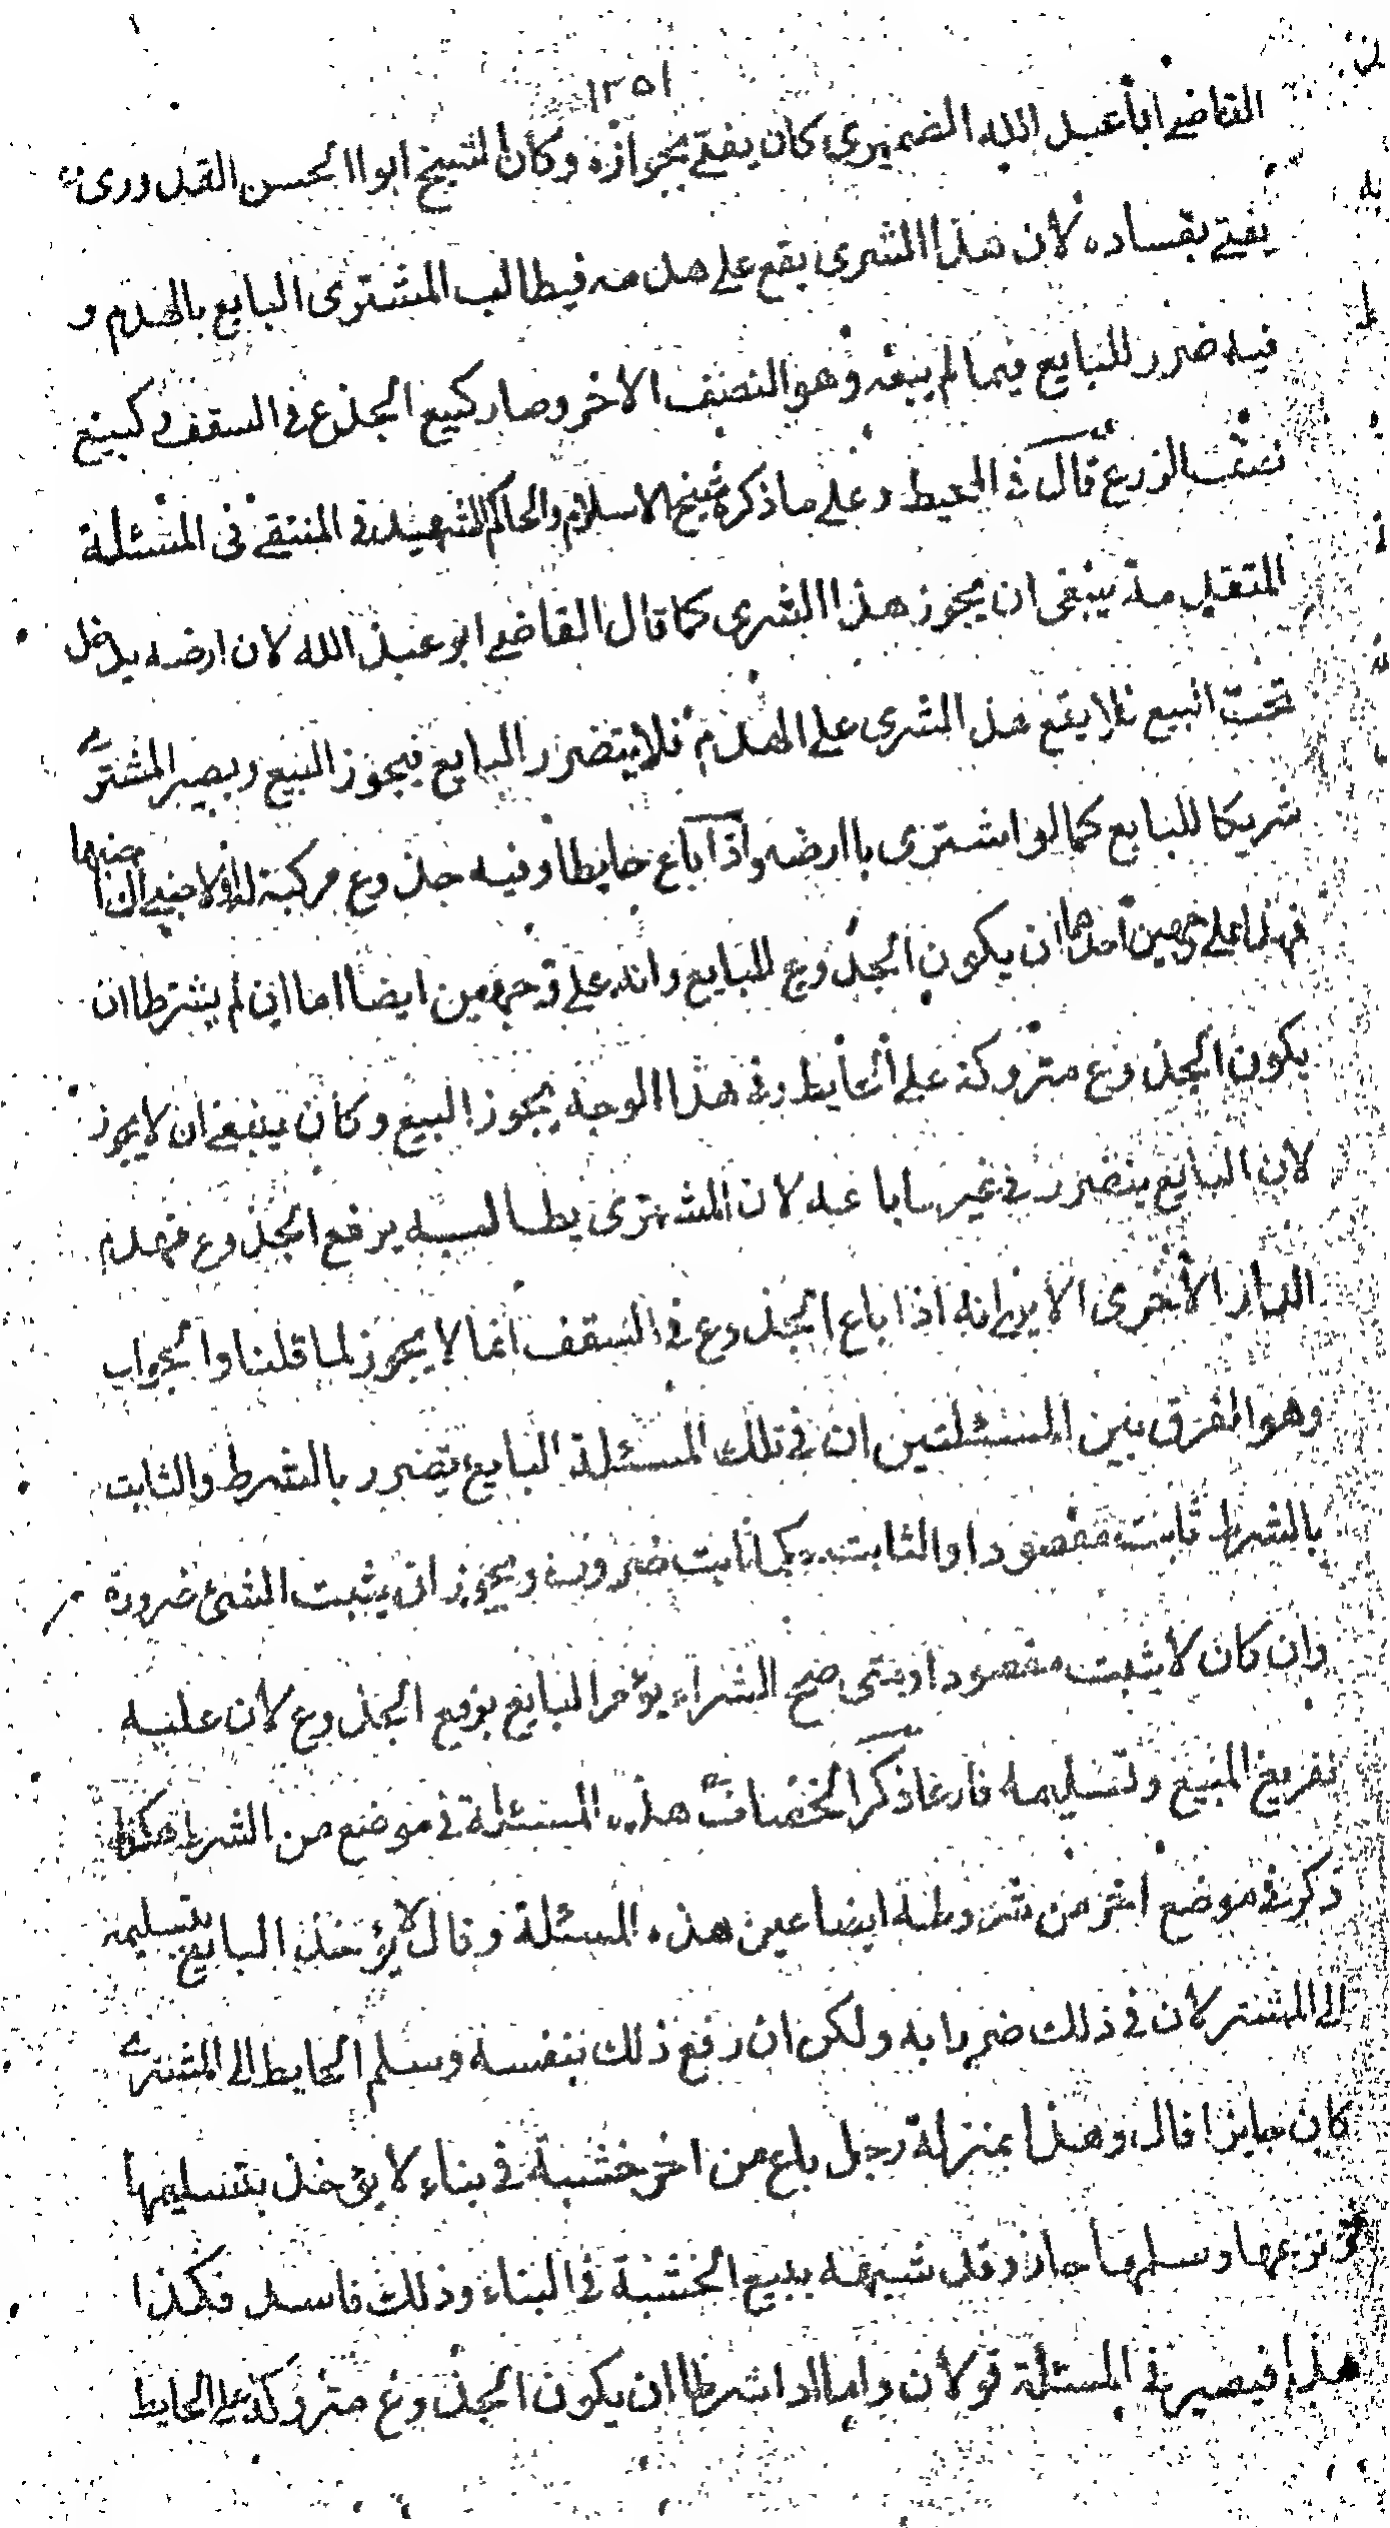 ١٢٥١
القاضي ابا عبد الله الضميري كان يفتي بجوازه وكان الشيخ ابوا الحسن القدوري
يفتي بفساده لان هذا الشرى يقع على هدمه فيطالب المشترى البايع بالهدم و
فيه ضرر للبايع فيما لم يبعه وهو النصف الاخر وصار كبيع الجذع في السقف وكبيع
نصف الزرع قال في المحيط وعلى ما ذكره شيخ الاسلام والحاكم الشهيد في المنتقى في المسئلة
المتقدمة ينبغي ان يجوز هذا الشرى كما قال القاضي ابو عبد الله لان ارضه يدخل
تحت البيع فلا يقع هذا الشرى على الهدم فلا يتضرر البايع فيجوز البيع ويصير المشتري
شريكا للبايع كما لو اشترى با ارضه واذا باع حايطا وفيه جذوع مركبة له او لاجنبي
فهذا على وجهين احدهما ان يكون الجذوع للبايع وانه على وجهين ايضا اما ان لم يشترطا ان
يكون الجذوع متروكة على الحايط وفي هذا الوجه يجوز البيع وكان ينبغي ان لا يجوز
لان البايع يتضرر في غير ما باعه لان المشترى يطالبه برفع الجذوع فهدم
الدار الاخرى الا يرى انه اذا باع الجذوع في السقف انما لا يجوز لما قلنا والجواب
وهو الفرق بين المسئلتين ان في تلك المسئلة البايع يتضرر بالشرط والثابت
بالشرط ثابت مقصودا والثابت ثابت ضرورة ويجوز ان يثبت الشئ ضرورة
وان كان لا يثبت مقصودا ومتى صح الشراء يؤمر البايع برفع الجذوع لان عليه
تفريغ المبيع وتسليمه فارغا ذكر الخصاف هذه المسئلة في موضع من الشرط هكذا
ذكر في موضع اخر من شروطه ايضا عين هذه المسئلة وقال لا يؤخذ البايع بتسليمه
الى المشتر لان في ذلك ضررا به ولكن ان رفع ذلك بنفسه وسلم الحايط الى المشتري
كان جايزا قال وهذا بمنزلة رجل باع من اخر خشبة في بناء لا يؤخذ بتسليمها
نزعها وسلمها جاز وقد شبهه ببيع الخشبة في البناء وذلك فاسد فكذا
هذا فيصير في المسئلة قولان واما اذا شرطا ان يكون الجذوع متروكة على الحايط